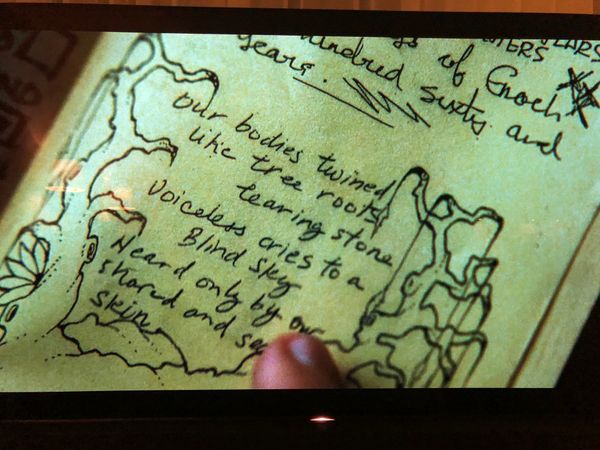 of Enoch
hundred sixty and
years.
Our bodies twined
like tree roots
tearing stone
Voiceless cries to a
Blind sky
Heard only by our
shared and
skin